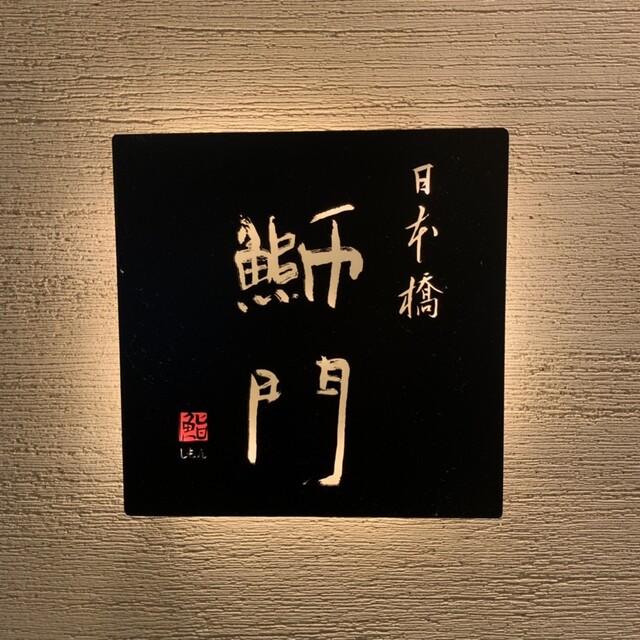 日本橋
鰤門
鮨
しもん